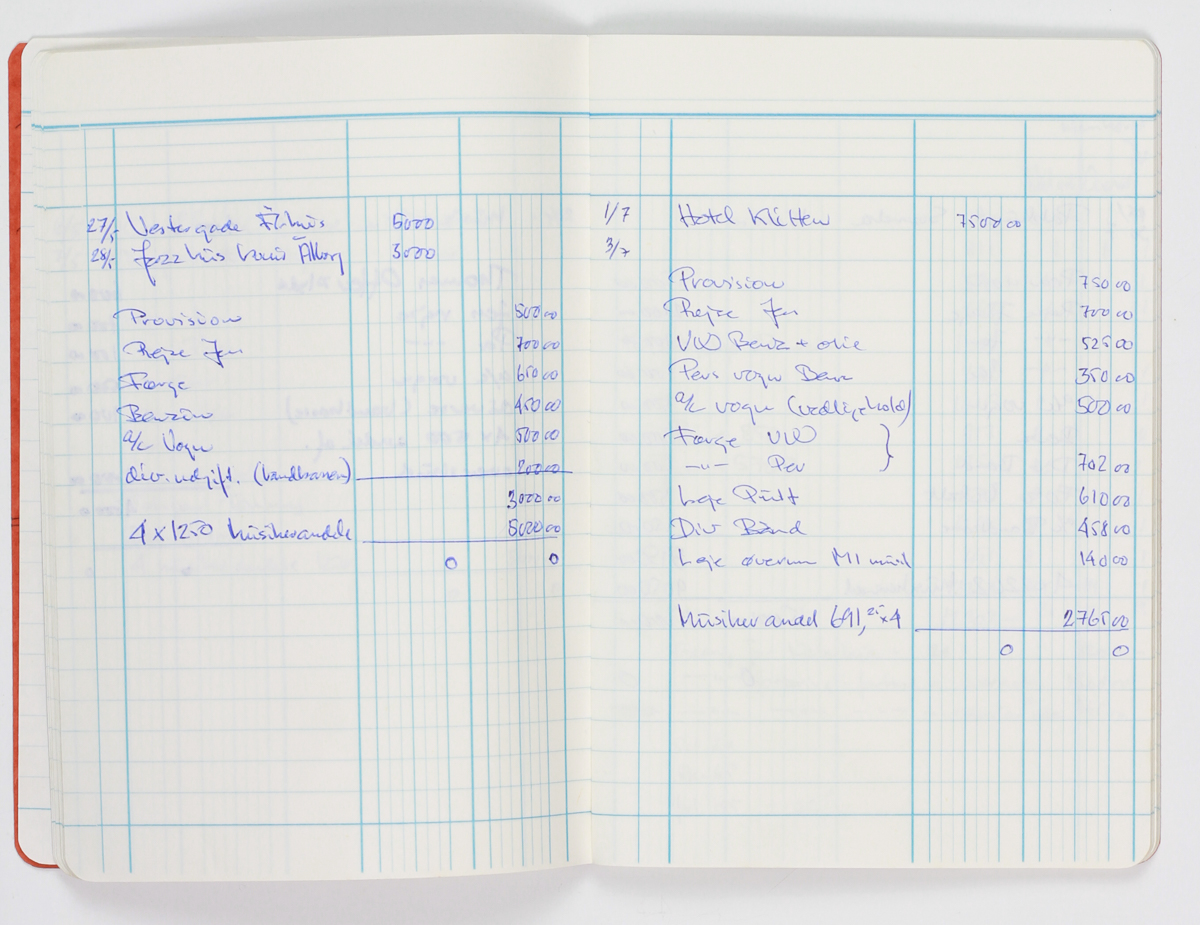 27/5 Vestergade Århus 5000
28/5 Jazzhus Louis Ålborg 3000
Provision 500 00
Rejse Jen 700 00
Færge 650 00
Benzin 450 00
a/c Vogn 500 00
div. udgift. (båndkassen) 200 00
3000 00
4 x 1250 Musikerandele 5000 00
0 0
1/7 Hotel Klitten 7500 00
3/7
Provision 750 00
Rejse Jen 700 00
VW Benz + olie 525 00
Pers vogn Benz 350 00
a/c vogn (vedligehold) 500 00
Færge VW
—"— Per 702 00
Leje Pult 610 00
Div Bånd 458 00
Leje øverum 140 00
Musikerandel 691,25 x 4 2765 00
0 0